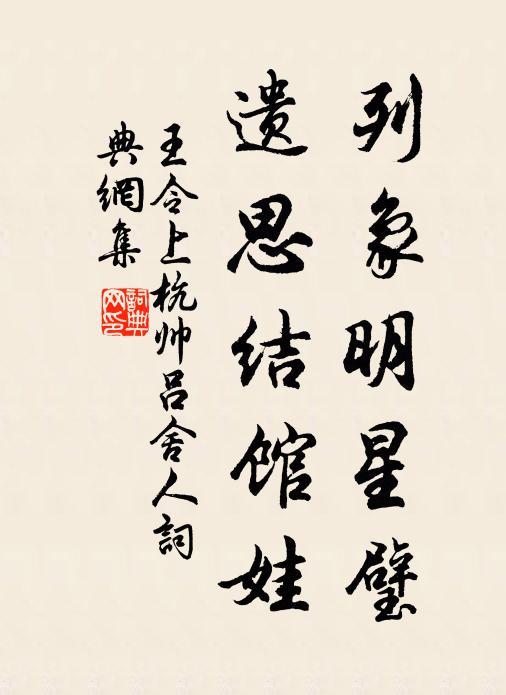 列象明星璧
遗思结馆娃
王令上杭帅吕舍人詞
典網集
詞典
网印